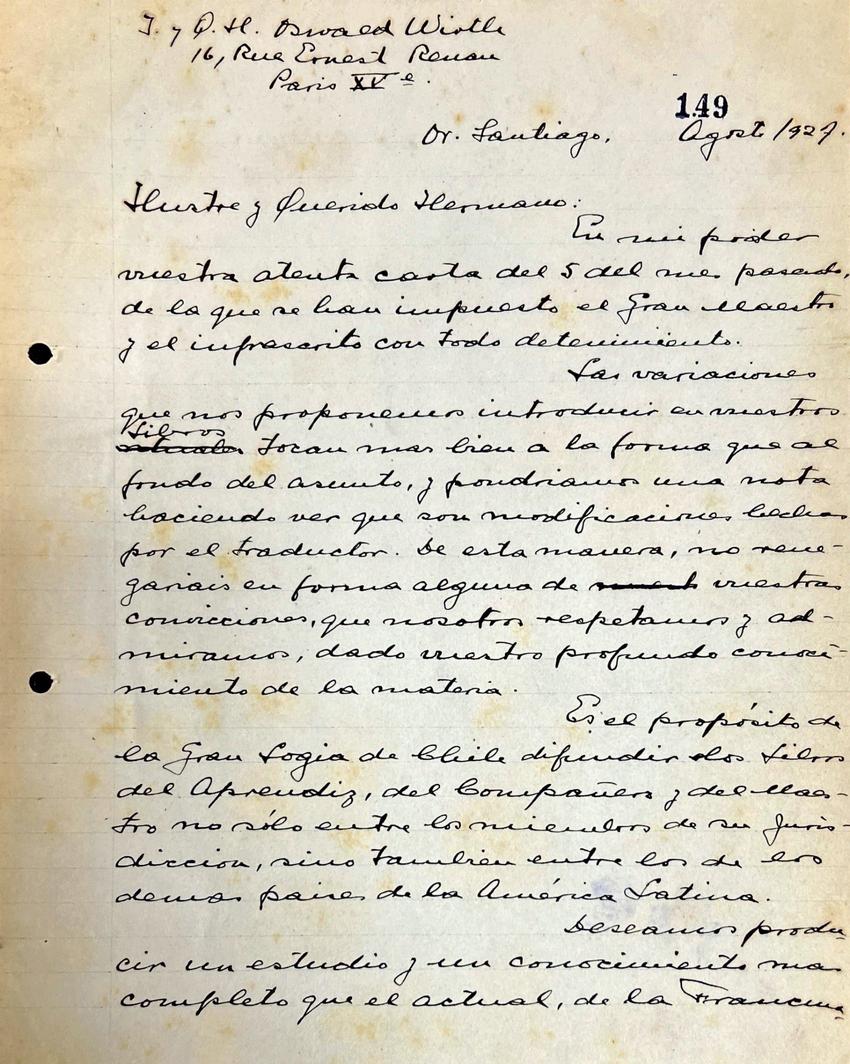 I. y Q. H. Oswald Wirth
16, Rue Ernest Renan
Paris XVe.
149
Or. Santiago, Agosto 1927.
Ilustre y Querido Hermano:
En mi poder
vuestra atenta carta del 5 del mes pasado,
de la que se han impuesto el Gran Maestro
y el infrascrito con todo detenimiento.
Las variaciones
que nos proponemos introducir en vuestros
Libros
rituales tocan mas bien a la forma que al
fondo del asunto, y pondriamos una nota
haciendo ver que son modificaciones hechas
por el traductor. De esta manera, no rene-
gariais en forma alguna de vuestras
convicciones, que nosotros respetamos y ad-
miramos, dado vuestro profundo conoci-
miento de la materia.
Es el propósito de
la Gran Logia de Chile difundir los Libros
del Aprendiz, del Compañero y del Maes-
tro no sólo entre los miembros de su Juris-
diccion, sino tambien entre los de los
demas paises de la América Latina.
Deseamos produ-
cir un estudio y un conocimiento mas
completo que el actual, de la Francma-